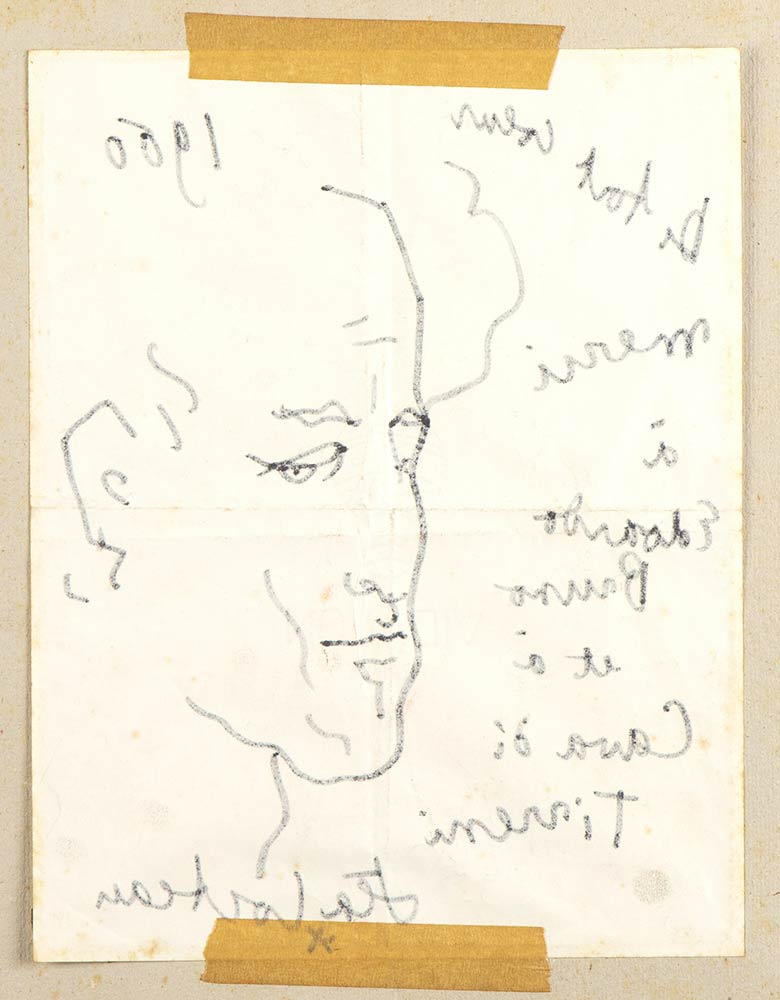 1960
De tout cœur
merci
à
Edoardo
Bruno
et à
Cava di
Tirreni
Jean Cocteau